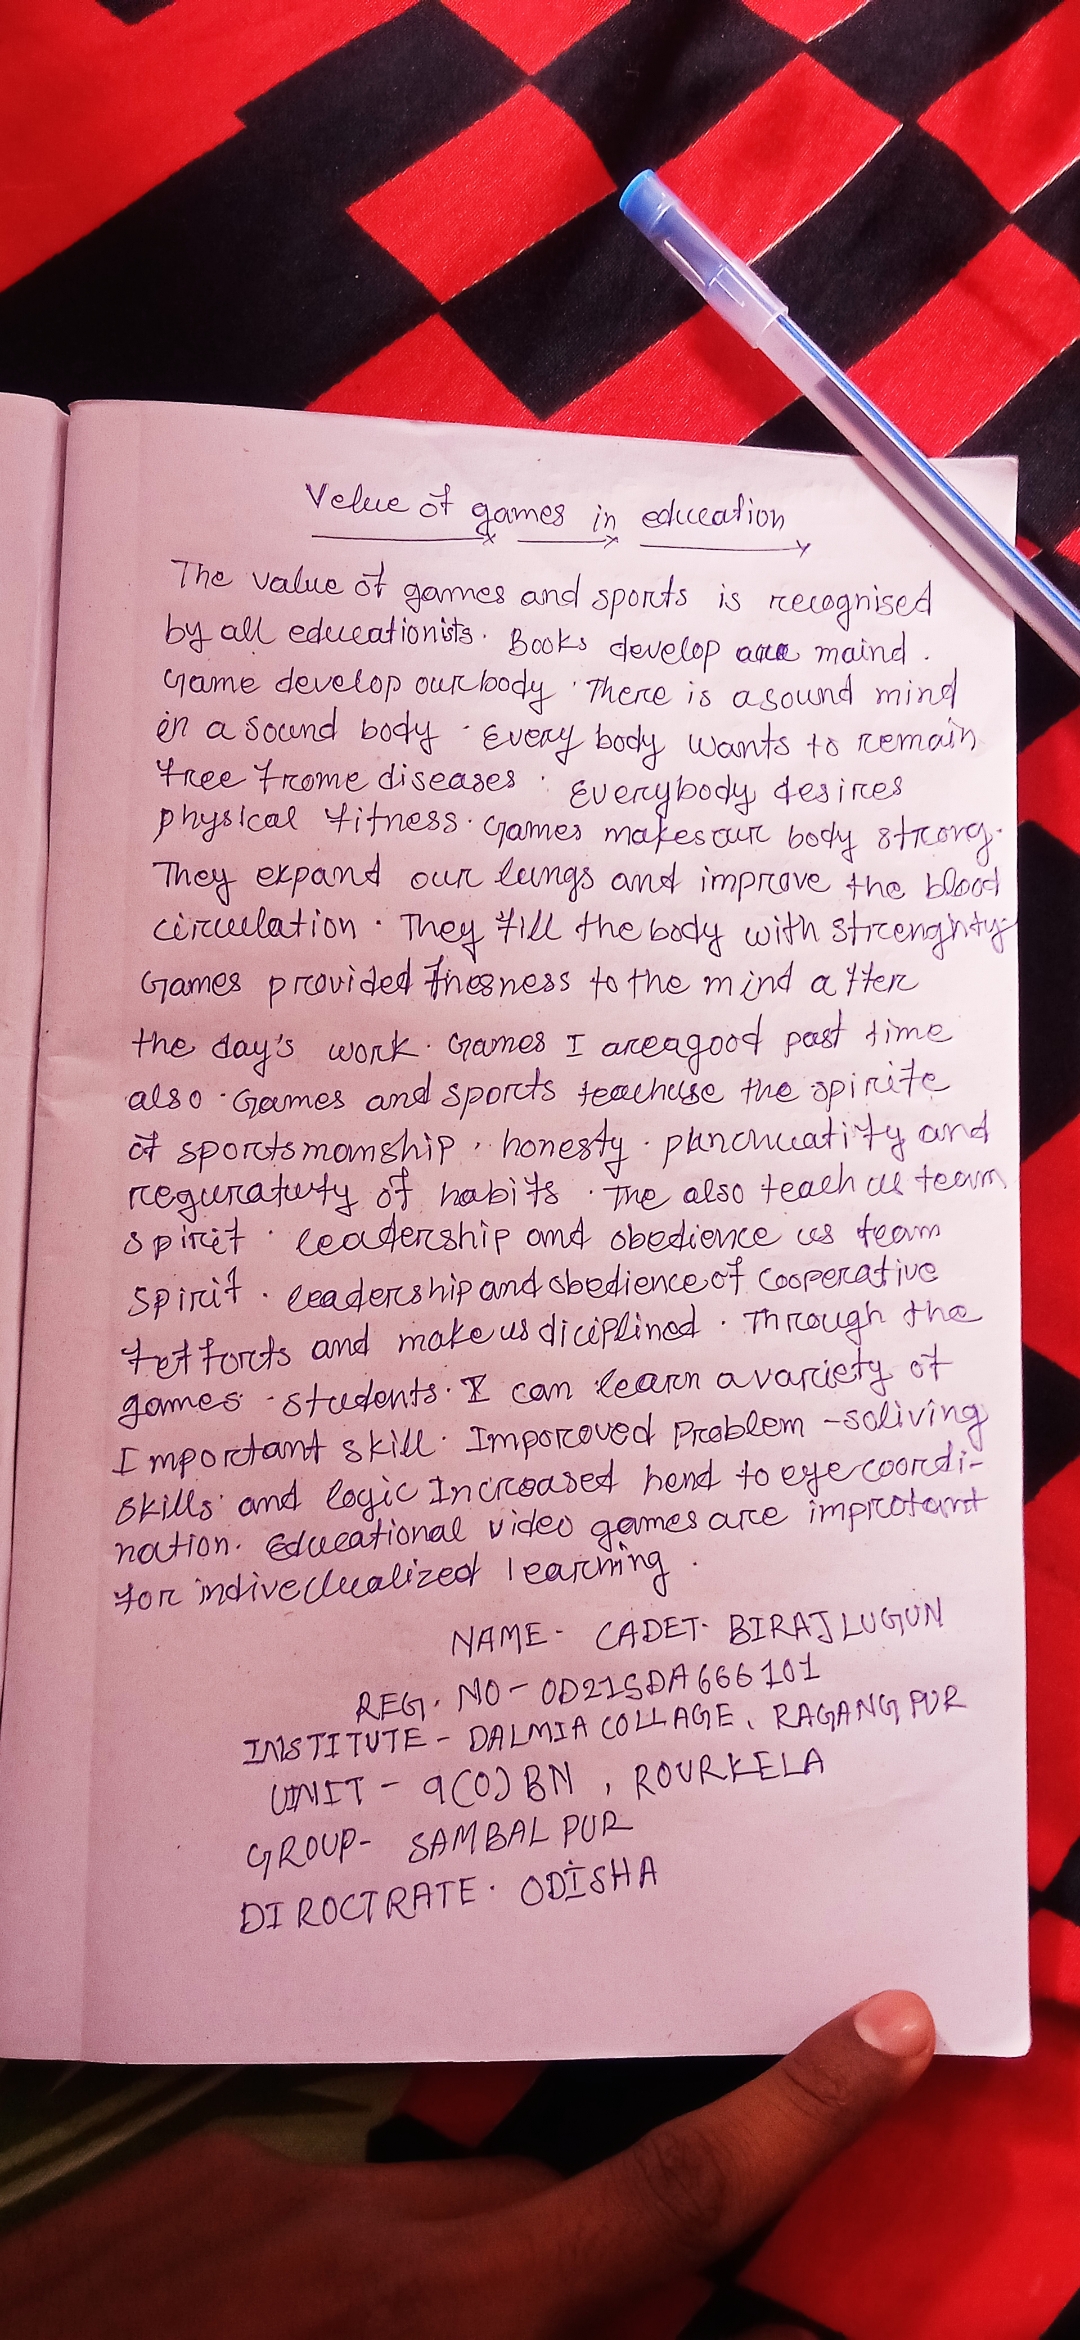 Velue of games in education
The value of games and sports is recognised
by all educationists. Books develop maind.
Game develop our body. There is a sound mind
in a sound body. Every body wants to remain
free frome diseases. Everybody desires
physical fitness. Games makes our body strong.
They expand our lungs and improve the blood
circulation. They fill the body with strenghty
Games provided fnesness to the mind after
the day's work. Games I are a good past time
also. Games and sports teachuse the spirite
of sportsmanship, honesty. and
of habits. The also teach us team
spirit. leadership and obedience us team
spirit. leadership and obedience of cooperative
fefforts and make us diciplined. Through the
games. students. I can learn a variety of
Important skill. Imporoved Problem-soliving
skills and logic Increased hend to eye coordi-
nation. Educational video games are improtant
for learning.
NAME- CADET- BIRAJ LUGUN
REG. NO- OD21SDA666101
INSTITUTE- DALMIA COLLAGE, RAGANGPUR
UNIT- 9(O) BN, ROURKELA
GROUP- SAMBALPUR
DIROCTRATE. ODISHA